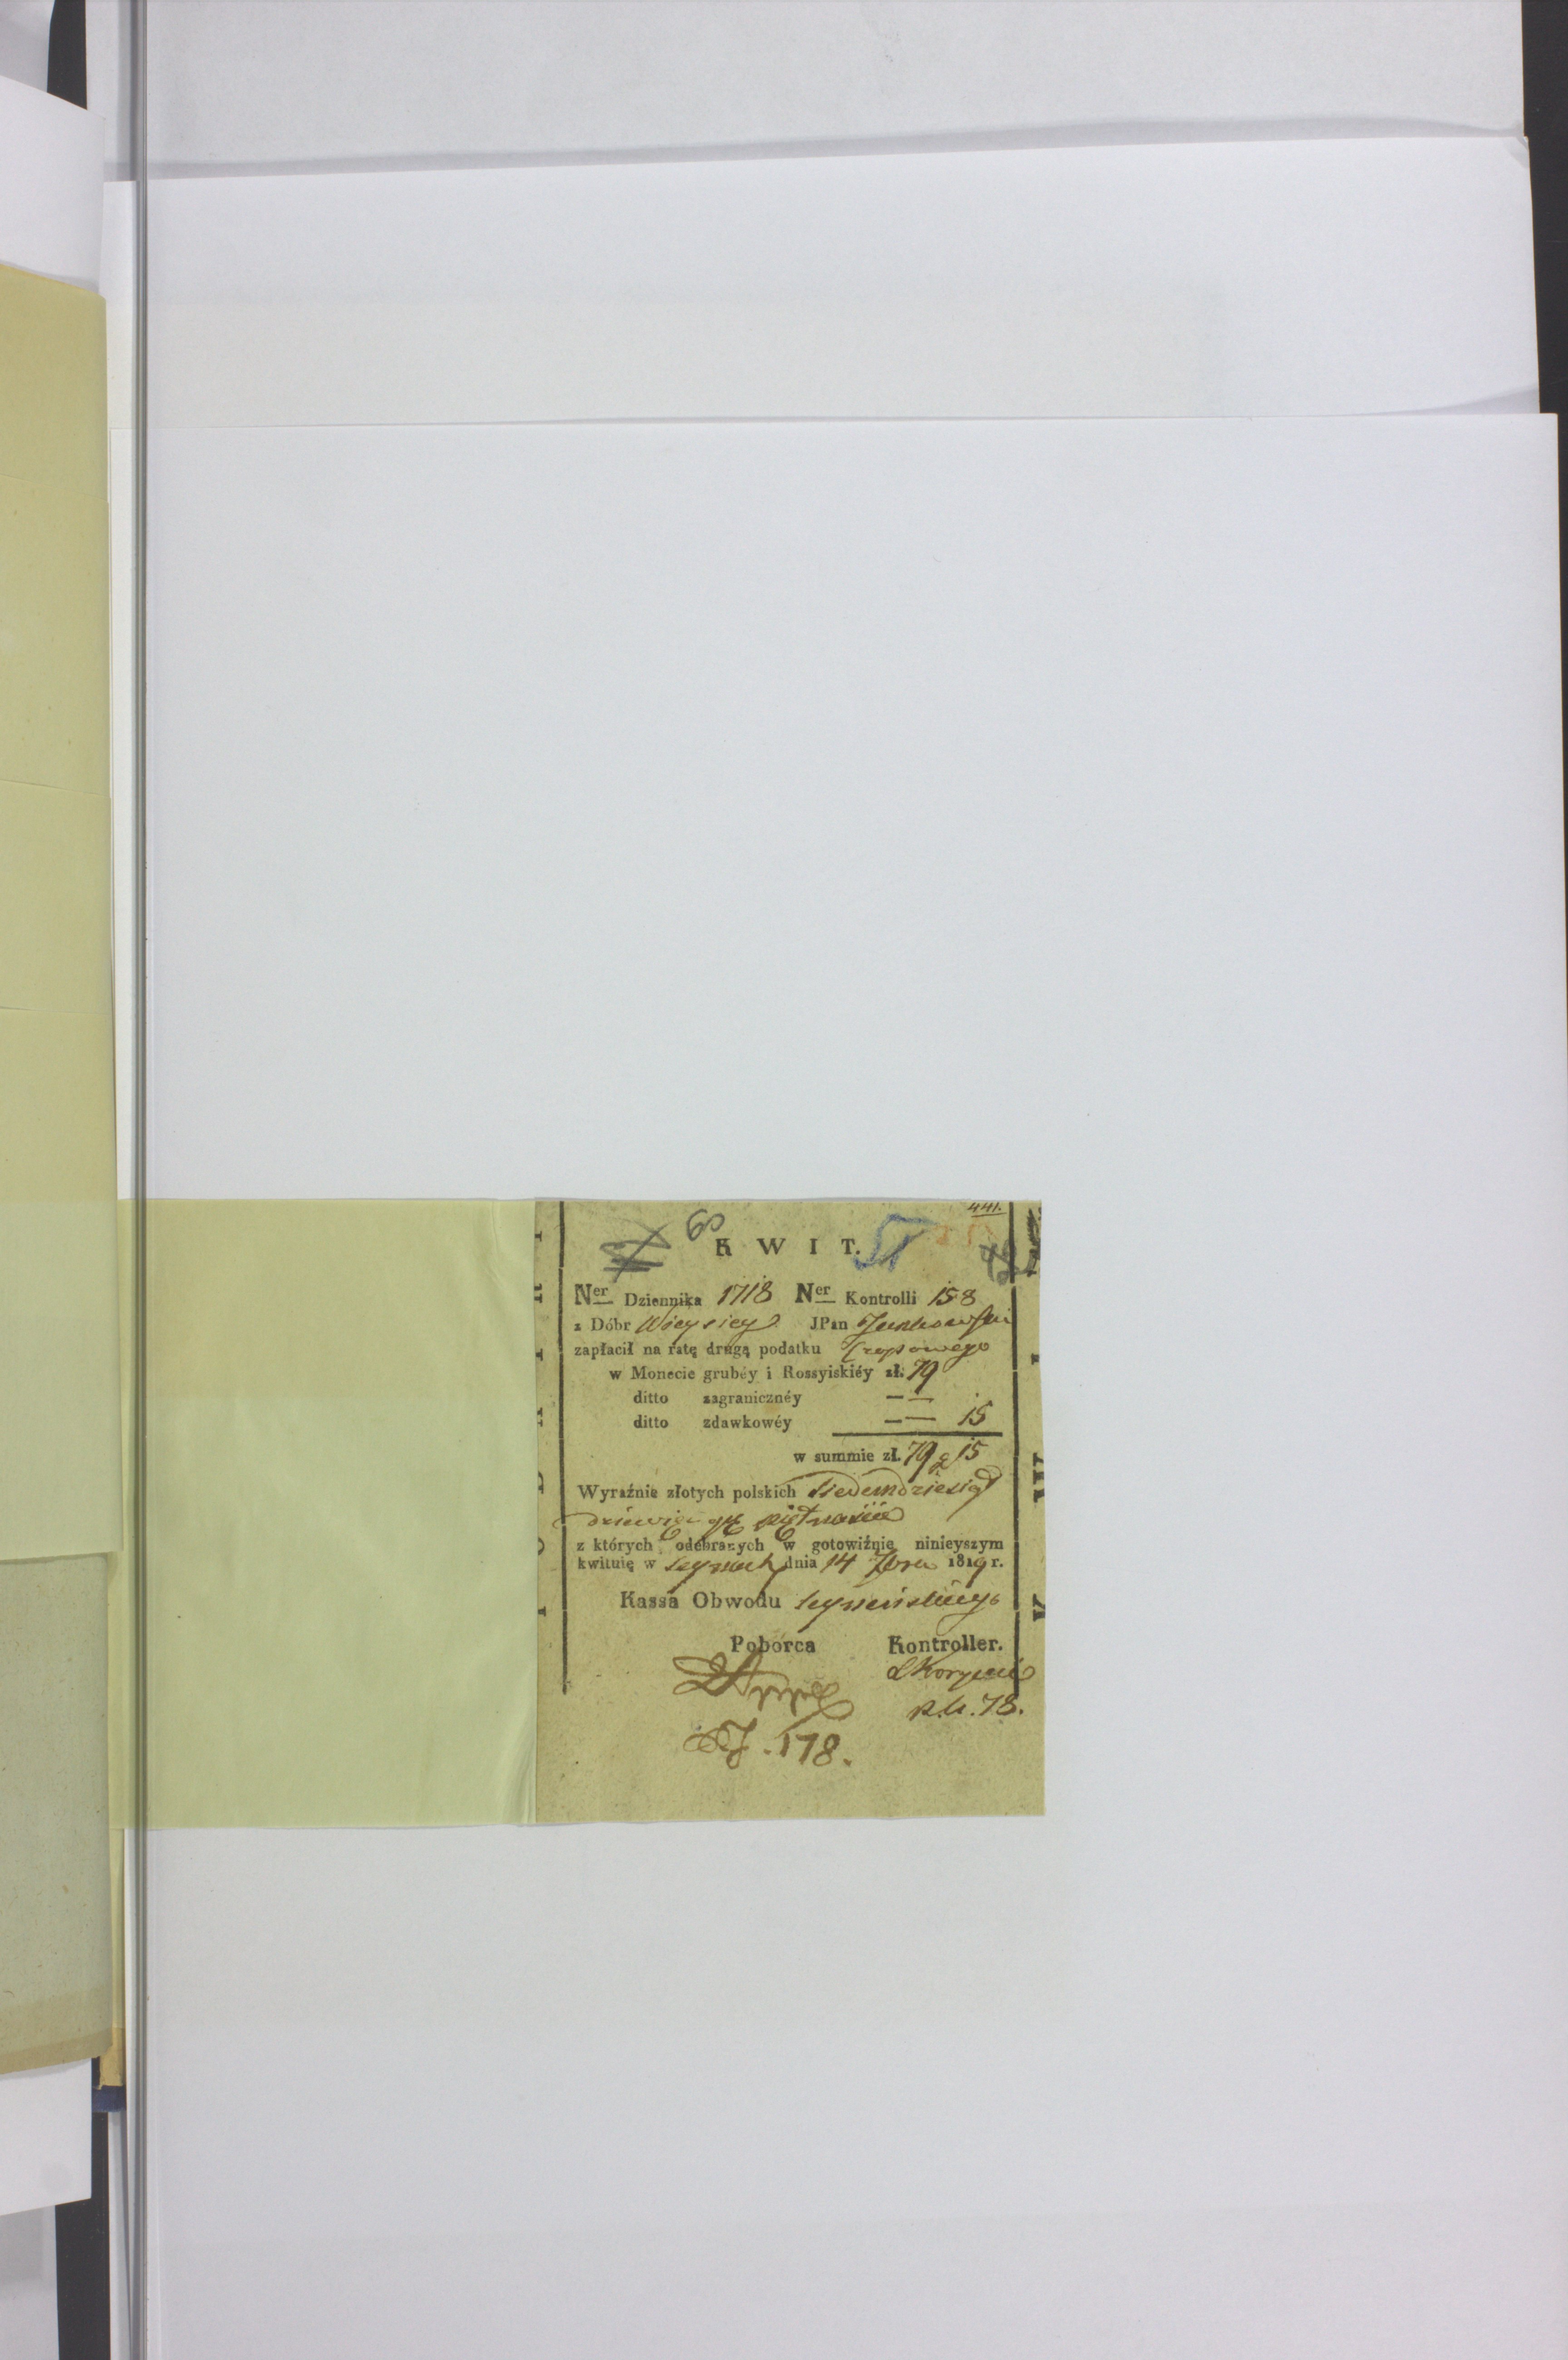 441.
6
KWIT.
Ner Dziennika 1718 Ner Kontrolli 158
z Dóbr Wieysiey JPan Junkowski
zapłacił na ratę drugą podatku Czopowego
w Monecie grubéy i Rossyiskiéy zł. 79
ditto zagranicznéy — —
ditto zdawkowéy — — 15
w summie zł. 79 g 15
Wyraźnie złotych polskich Siedemdziesiąt
dziewięć gr piętnaście
z których odebranych w gotowiźnie ninieyszym
kwituię w Seynach dnia 14 7bra 1819 r.
Kassa Obwodu Seyneńskiego
Poborca Kontroller.
178. 78.